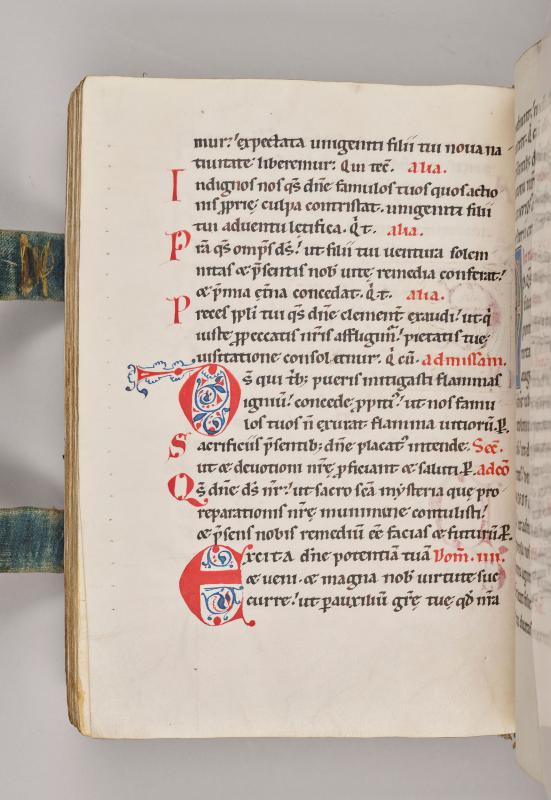 mur: expectata unigeniti filii tui noua na
tiuitate liberemur: Qui tec̄. alia.
Indignos nos q̄s dn̄e famulos tuos quos actio
nis ꝓprię culpa contristat. unigeniti filii
tui aduentu letifica. Q̄. t. alia.
Pr̄a q̄s omp̄s ds̄. ut filii tui uentura solem
nitas & p̄sentis nob̄ uitę remedia conferat.
& p̄mia et̄na concedat. Q̄. t. alia.
Preces ppl̄i tui q̄s dn̄e clement̄ exaudi: ut q̇
iuste ꝓ peccatis nr̄is affligim᷒: pietatis tuę
uisitatione consolemur. q̄ cū. ad missam.
Ds̄ qui t̄b; pueris mitigasti flammas
igniū: concede ꝓpiti᷒ ut nos famu
los tuos n̄ exurat flamma uitiorū. P̄.
Sacrificiis p̄sentib; dn̄e placat᷒ intende. Sec̄.
ut & deuotioni nr̄ę ꝓficiant & saluti. P̄. ad cō
Qs̄ dn̄e ds̄ nr̄: ut sacro sc̄a mysteria que pro
reparationis nr̄ę munimine contulisti:
& p̄sens nobis remediū eē facias & futurū. P̄.
Excita dn̄e potentiā tuā Dom̄. iiii.
& ueni. & magna nob̄ uirtute suc
curre: ut ꝑ auxiliū gr̄ę tuę. qd̄ nr̄a